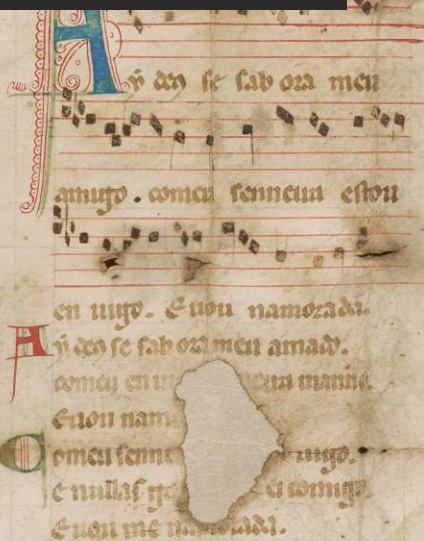 Ay deꝯ se sab ora meu
amigo. comeu senneira estou
en uigo. E uou namorada.
Ay deꝯ se sab ora meu amado.
comeu en manno.
E uou
Comeu uigo.
e nullas ei comigo.
E uou